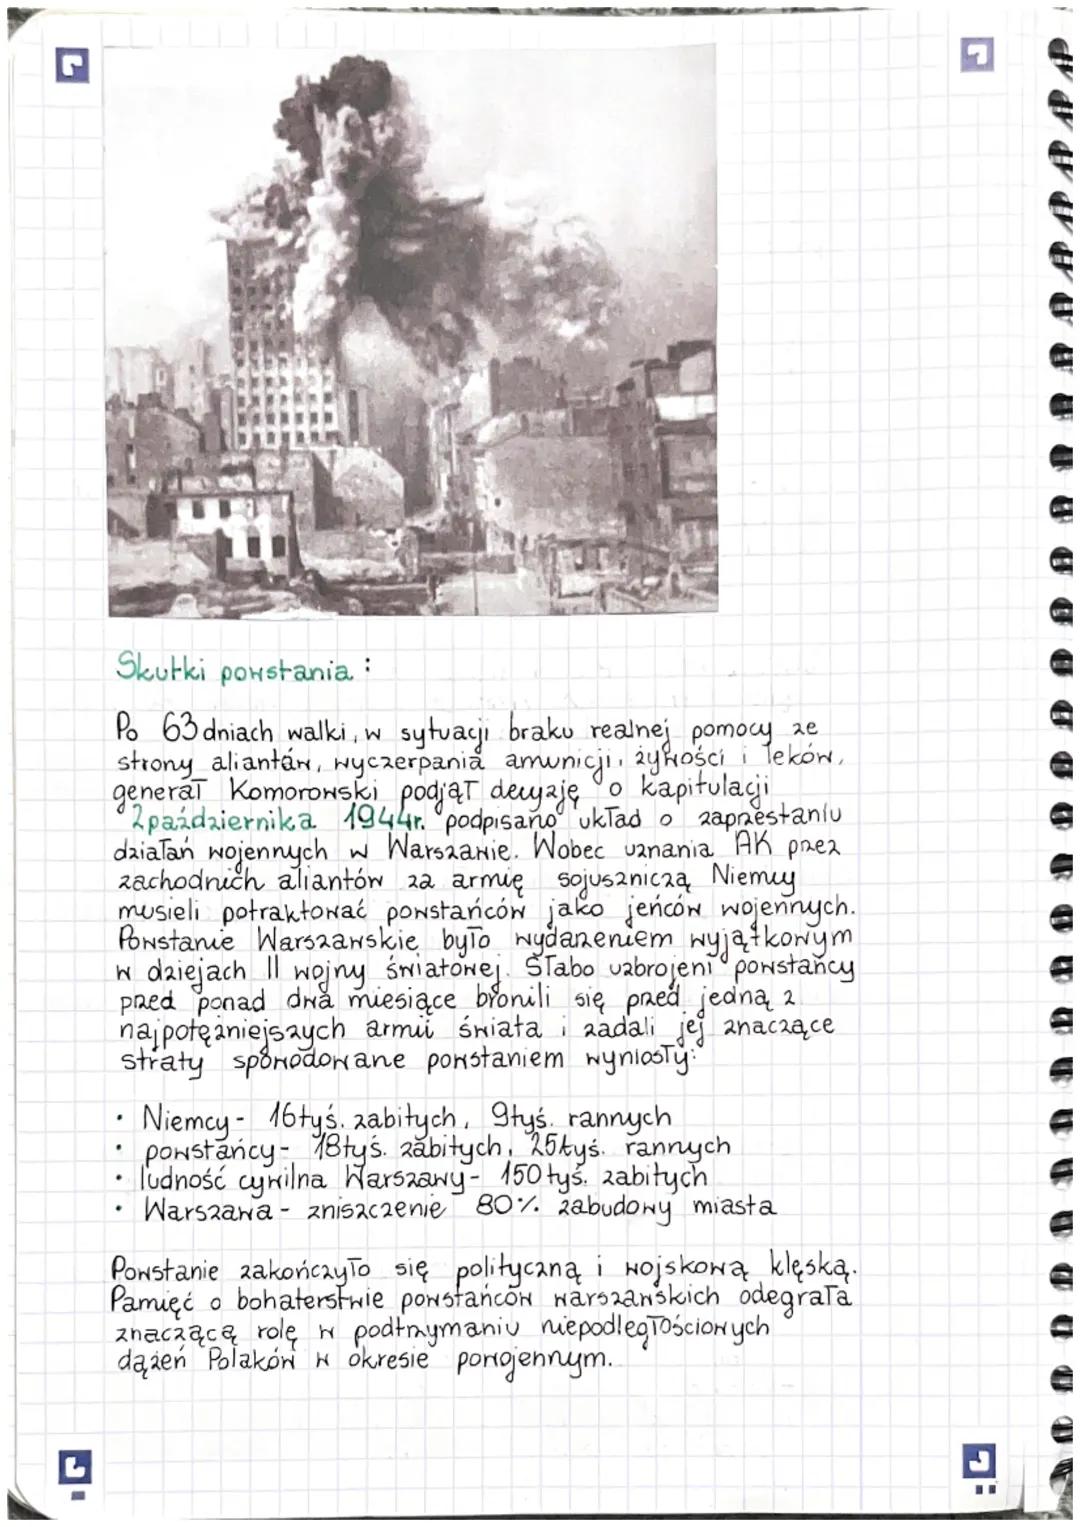 Skutki powstania :
Po 63 dniach walki, w sytuacji braku realnej pomocy ze
strony aliantów, wyczerpania amunicji, żywności i leków,
generał Komorowski podjął decyzję o kapitulacji
2 października 1944r. podpisano układ o zaprzestaniu
działań wojennych w Warszawie. Wobec uznania AK przez
zachodnich aliantów za armię sojuszniczą Niemcy
musieli potraktować powstańców jako jeńców wojennych.
Powstanie Warszawskie było wydarzeniem wyjątkowym
w dziejach II wojny światowej. Słabo uzbrojeni powstańcy
przed ponad dwa miesiące bronili się przed jedną z
najpotężniejszych armii świata i zadali jej znaczące
straty spowodowane powstaniem wyniosły:
• Niemcy - 16tyś. zabitych, 9tyś. rannych
• powstańcy - 18tyś. zabitych, 25tyś. rannych
• ludność cywilna Warszawy - 150 tyś. zabitych
• Warszawa - zniszczenie 80% zabudowy miasta
Powstanie zakończyło się polityczną i wojskową klęską.
Pamięć o bohaterstwie powstańców warszawskich odegrała
znaczącą rolę w podtrzymaniu niepodległościowych
dążeń Polaków w okresie powojennym.